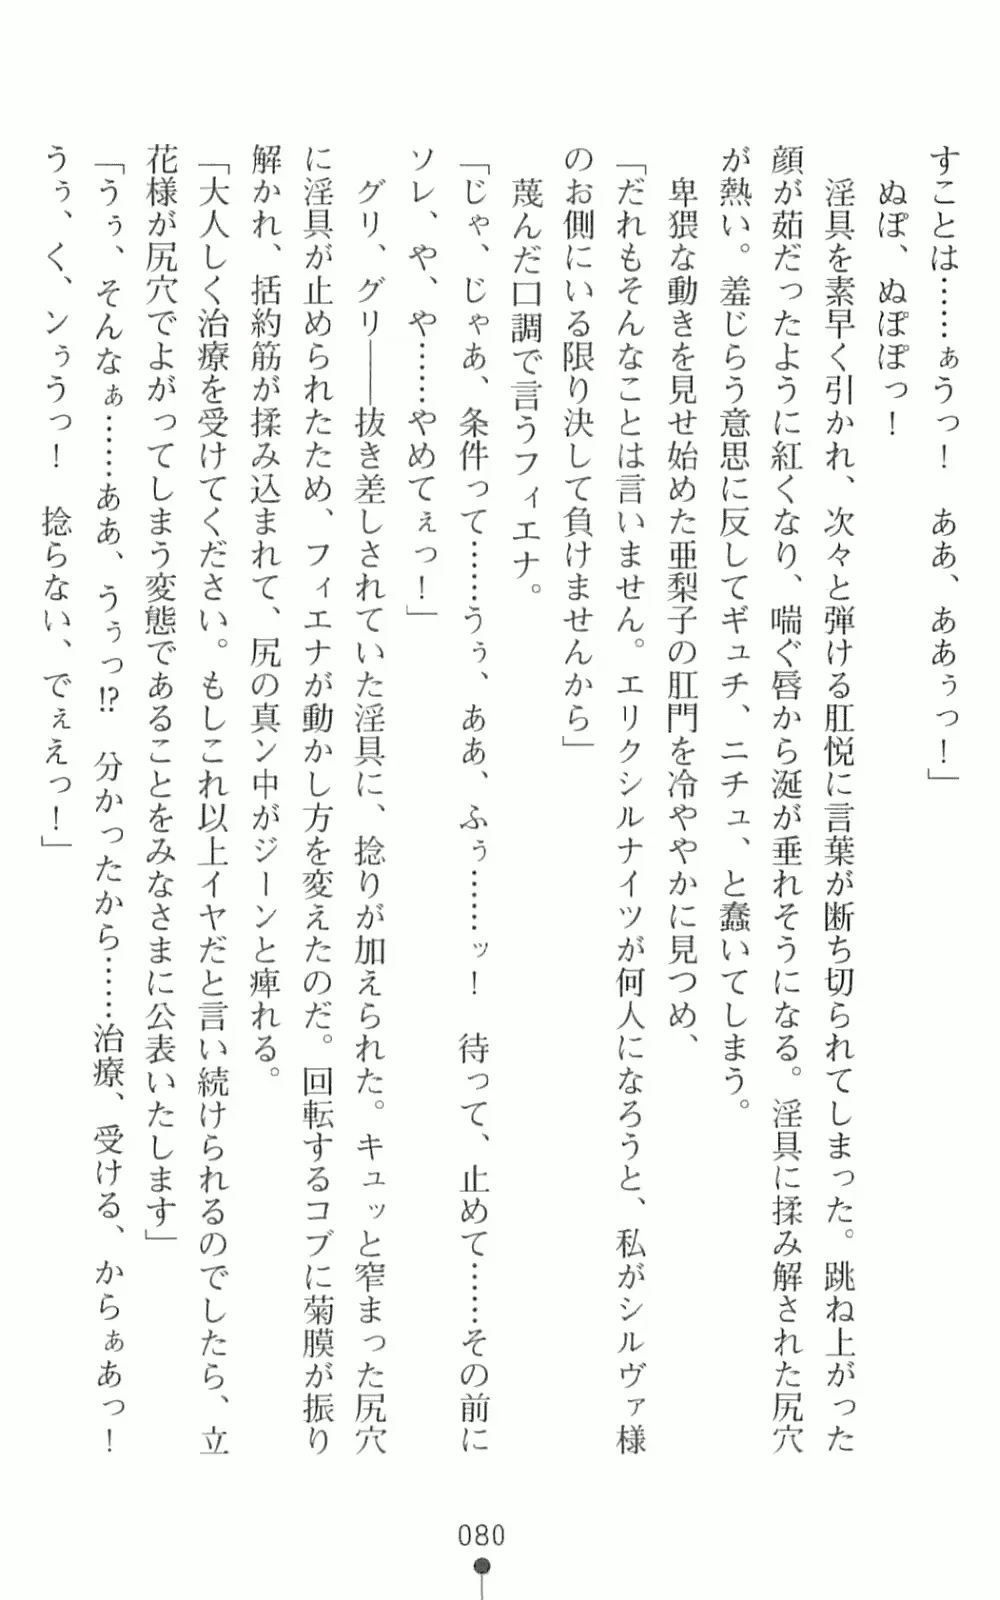 すことは……ぁうっ！　ああ、ああぅっ！」
ぬぽ、ぬぽぽっ！
淫具を素早く引かれ、次々と弾ける肛悦に言葉が断ち切られてしまった。跳ね上がった
顔が茹だったように紅くなり、喘ぐ唇から涎が垂れそうになる。淫具に揉み解された尻穴
が熱い。羞じらう意思に反してギュチ、ニチュ、と蠢いてしまう。
卑猥な動きを見せ始めた亜梨子の肛門を冷ややかに見つめ、
「だれもそんなことは言いません。エリクシルナイツが何人になろうと、私がシルヴァ様
のお側にいる限り決して負けませんから」
蔑んだ口調で言うフィエナ。
「じゃ、じゃあ、条件って……うぅ、ああ、ふぅ……ッ！　待って、止めて……その前に
ソレ、や、や……やめてぇっ！」
グリ、グリ――抜き差しされていた淫具に、捻りが加えられた。キュッと窄まった尻穴
に淫具が止められたため、フィエナが動かし方を変えたのだ。回転するコブに菊膜が振り
解かれ、括約筋が揉み込まれて、尻の真ン中がジーンと痺れる。
「大人しく治療を受けてください。もしこれ以上イヤだと言い続けられるのでしたら、立
花様が尻穴でよがってしまう変態であることをみなさまに公表いたします」
「うぅ、そんなぁ……ああ、うぅっ!?　分かったから……治療、受ける、からぁあっ！
うぅ、く、ンぅうっ！　捻らない、でぇえっ！」
080